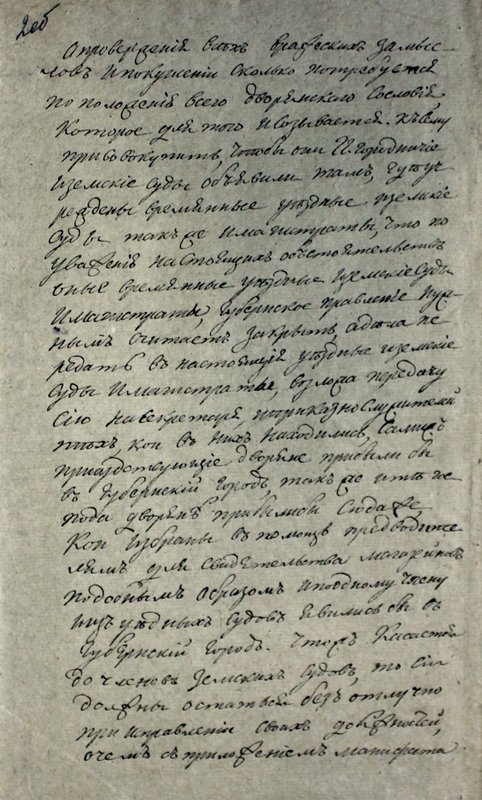 2об
опроверженiя всѣхъ вражескихъ замыс-
ловъ и покушенiй сколько потребуется
по положенiю всего дворянскаго сословiя,
которое для того и созывается. Къ сему
присовокупить, чтобы они и городничiе
и земскiе суды объявили тамъ, где уч
реждены временные уѣздные и земскiе
суды такъ же и магистраты, что по
уваженiю настоящихъ обстоятельствъ
оные временные уѣздные и земскiе суды
и магистраты, губернское правленiе нуж-
нымъ считаетъ закрыть, а дѣла пе
редать в настоящiя уѣздные и земскiе
суды и магистраты, возложа передачу
сiю на секретаря и приказнослужителей
тѣхъ кои в нихъ находились, а самые
присудствующiе дворяне прибыли бы
в губернскiй городъ такъ же и тѣ че
дворянъ прибыли бы сюда же,
кои избраны в помощь предводите
лямъ для свидетельства магазиновъ
подобнымъ образомъ и по одному члену
изъ уѣздныхъ судовъ явились бы в
губернскiй городъ. Чтожъ касается
до членовъ земскихъ судовъ, то сiи
должны остаться безъ отлучно
при исправленiи своихъ должностей,
о чемъ съ приложенiемъ манифеста